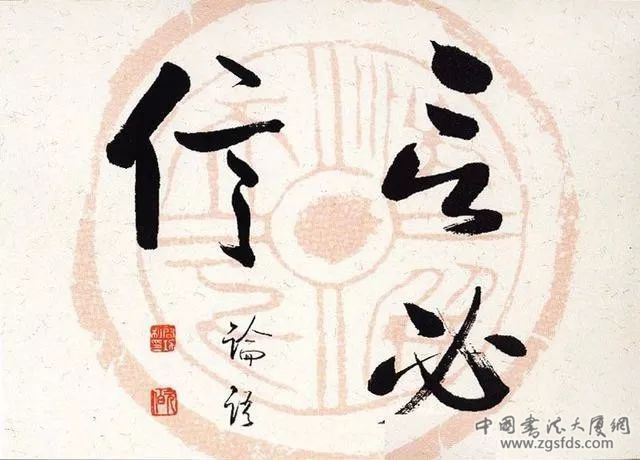 言必
信
論語
中国书法大厦网
www.zgsfds.com